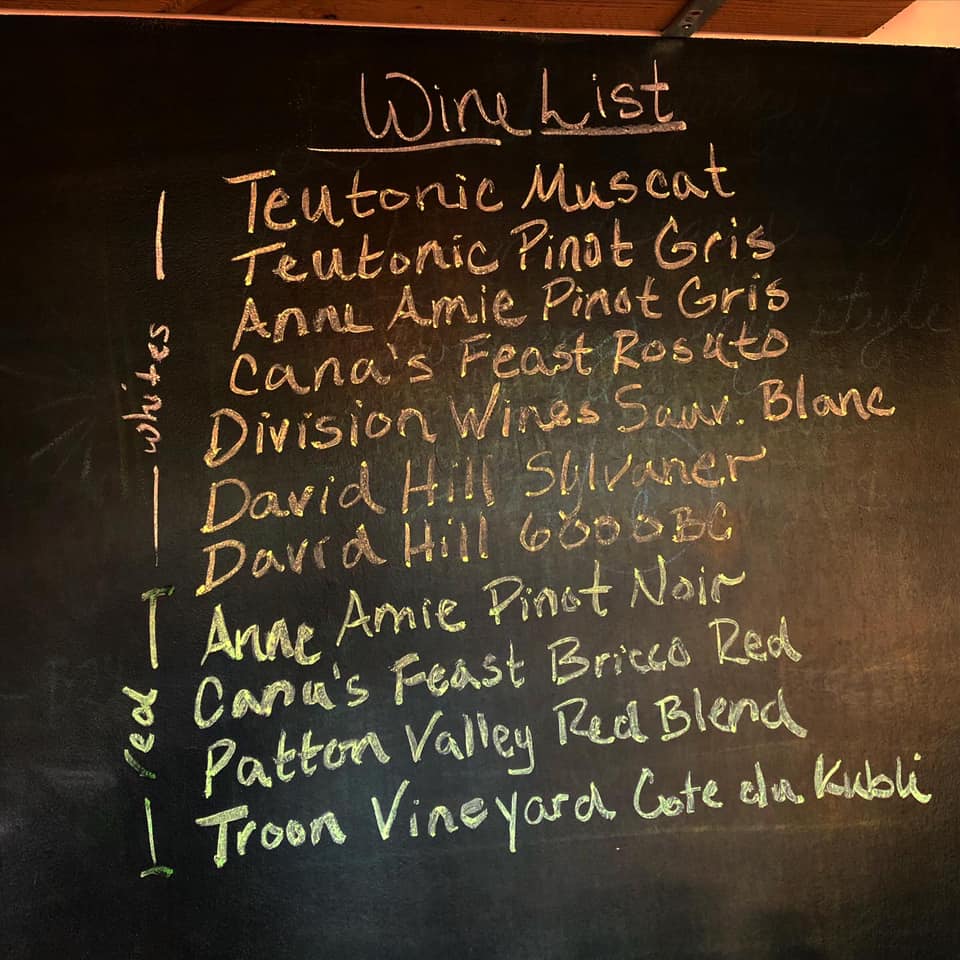 Wine List
Teutonic Muscat
Teutonic Pinot Gris
Anne Amie Pinot Gris
Cana's Feast Rosato
Division Wines Sauv. Blanc
David Hill Sylvaner
David Hill 6000BC
whites
Anne Amie Pinot Noir
Cana's Feast Bricco Red
Patton Valley Red Blend
Troon Vineyard Cote du Kubli
red